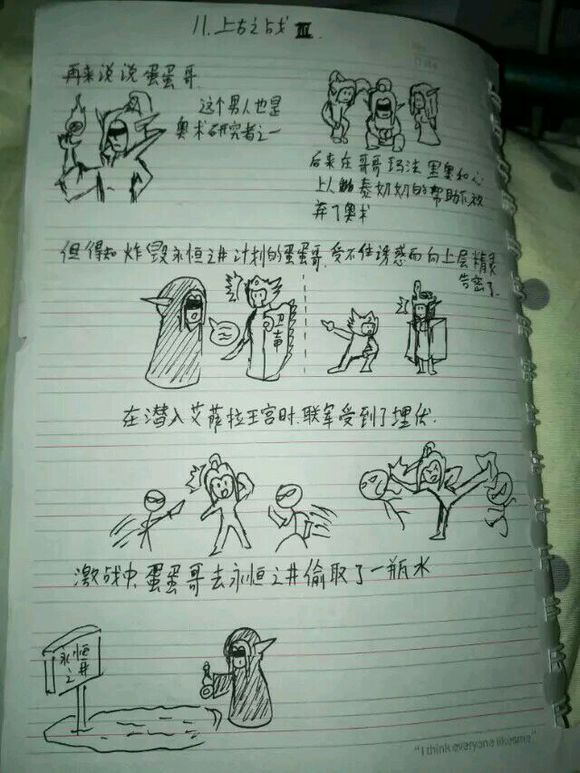 11.上古之战 III
再来说说蛋蛋哥
这个男人也是
奥术研究者之一
后来在哥哥玛法里奥和心
上人泰奶奶的帮助下放
弃了奥术
但得知炸毁永恒之井计划的蛋蛋哥,受不住诱惑而向上层精灵
告密了.
卫声
在潜入艾萨拉王宫时.联军受到了埋伏.
激战中蛋蛋哥去永恒之井偷取了一瓶水
永恒
之井
"I think everyone likes me"